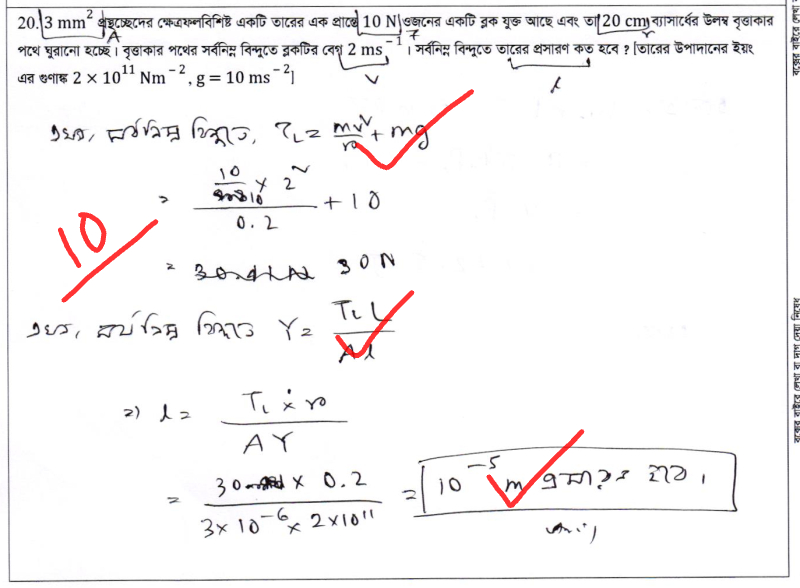 20. 3 mm² প্রস্থচ্ছেদের ক্ষেত্রফলবিশিষ্ট একটি তারের এক প্রান্তে 10 N ওজনের একটি ব্লক যুক্ত আছে এবং তা 20 cm ব্যাসার্ধের উলম্ব বৃত্তাকার
A r
পথে ঘুরানো হচ্ছে। বৃত্তাকার পথের সর্বনিম্ন বিন্দুতে ব্লকটির বেগ 2 ms⁻¹। সর্বনিম্ন বিন্দুতে তারের প্রসারণ কত হবে? [তারের উপাদানের ইয়ং
v l
এর গুণাঙ্ক 2 × 10¹¹ Nm⁻², g = 10 ms⁻²]
এখন, সর্বনিম্ন বিন্দুতে, T_L = mv²/r + mg
= (10/10 × 2²)/0.2 + 10
10
= 30 N
এখন, সর্বনিম্ন বিন্দুতে Y = T_L L / A l
⇒ l = T_L × r / AY
= 30 × 0.2 / 3×10⁻⁶ × 2×10¹¹ = 10⁻⁵ m প্রসারণ হবে।
বক্সের বাইরে লেখা বা দাগ দেয়া নিষেধ